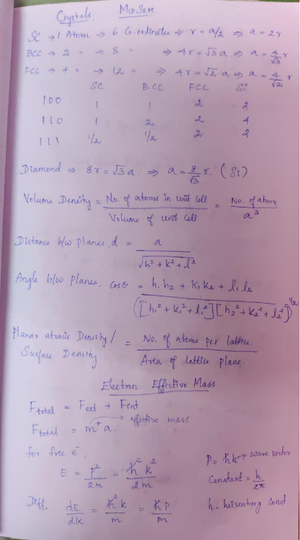 Mid Sem
Crystals
SC → 1 Atom → 6 Co-ordinates ⇒ r = a/2 ⇒ a = 2r
BCC → 2 " → 8 " ⇒ 4r = √3 a ⇒ a = 4/√3 r
FCC → 4 " → 12 " ⇒ 4r = √2 a ⇒ a = 4/√2 r
SC BCC FCC Si
100 1 1 2 2
110 1 2 2 4
111 1/2 1/2 2 2
Diamond ⇒ 8r = √3 a ⇒ a = 8/√3 r (Si)
Volume Density = No. of atoms in unit cell / Volume of unit cell = No. of atoms / a³
Distance b/w planes, d = a / √h² + k² + l²
Angle b/w planes. cosθ = h₁h₂ + k₁k₂ + l₁l₂ / ([h₁² + k₁² + l₁²][h₂² + k₂² + l₂²])^1/2
Planar atomic Density / Surface Density = No. of atoms per lattice / Area of lattice plane
Electron Effective Mass
F total = F ext + F int
F total = m* a → effective mass
for free e⁻
E = p²/2m = ħ²k²/2m
P = ħk → wave vector
Constant = h/2π
Diff. dE/dk = ħ²k/m = ħp/m
h -